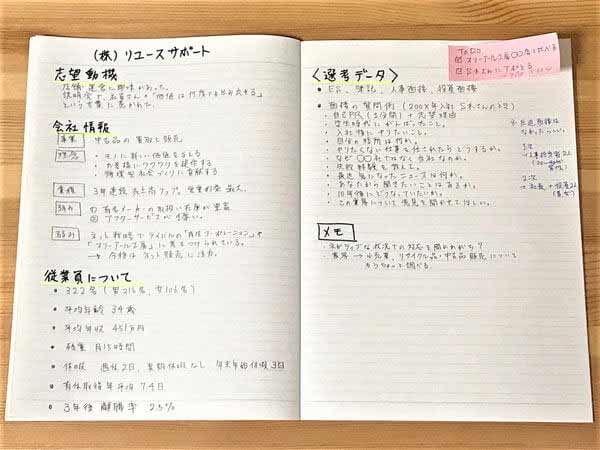 (株)リユースサポート
志望動機
店舗運営に興味があった。
説明会で、社員さんの「価値は何度でも生み出せる」
という言葉に惹かれた。
会社情報
事業 中古品の買取と販売
理念 ・モノに新しい価値を与える
・お客様にワクワクを提供する
・循環型社会づくりに貢献する
業績 3年連続売上高アップ。営業利益最大。
強み ① 有名メーカーの取扱い在庫が豊富
② アフターサービスが手厚い。
弱み ネット戦略でライバルの
に差をつけられている。
→ 今後はネット販売に注力。
従業員について
• 322名(男216名、女106名)
• 平均年齢 34歳
• 平均年収 451万円
• 残業 月15時間
• 休日 週休2日、夏期休暇なし 年末年始休暇3日
• 有休取得年平均 7.4日
• 3年後離職率 25%
ToDo
〈選考データ〉
• ES、筆記、人事面接、役員面接
• 面接の質問例(200X年入社 Sさんのメモ)
・自己PR(1分間)+志望理由
・学生時代にがんばったこと。
・入社後にやりたいこと。
・自分の短所は何か。
・やりたくない仕事を任されたらどうするか。
・なぜ〇〇社ではなく当社なのか。
・失敗経験を教えて。
・最近気になったニュースは何か。
・あなたが聞きたいことはあるか。
・10年後にどうなっていたいか。
・この業界について意見を聞かせてほしい。
※圧迫面接は
なかったらしい。
1次
2次
→ 社長+役員2人
メモ
・ネガティブな状況での対応を聞かれがち?
・業界 → 小売業、リサイクル品・中古品販売について
もうちょっと調べる。